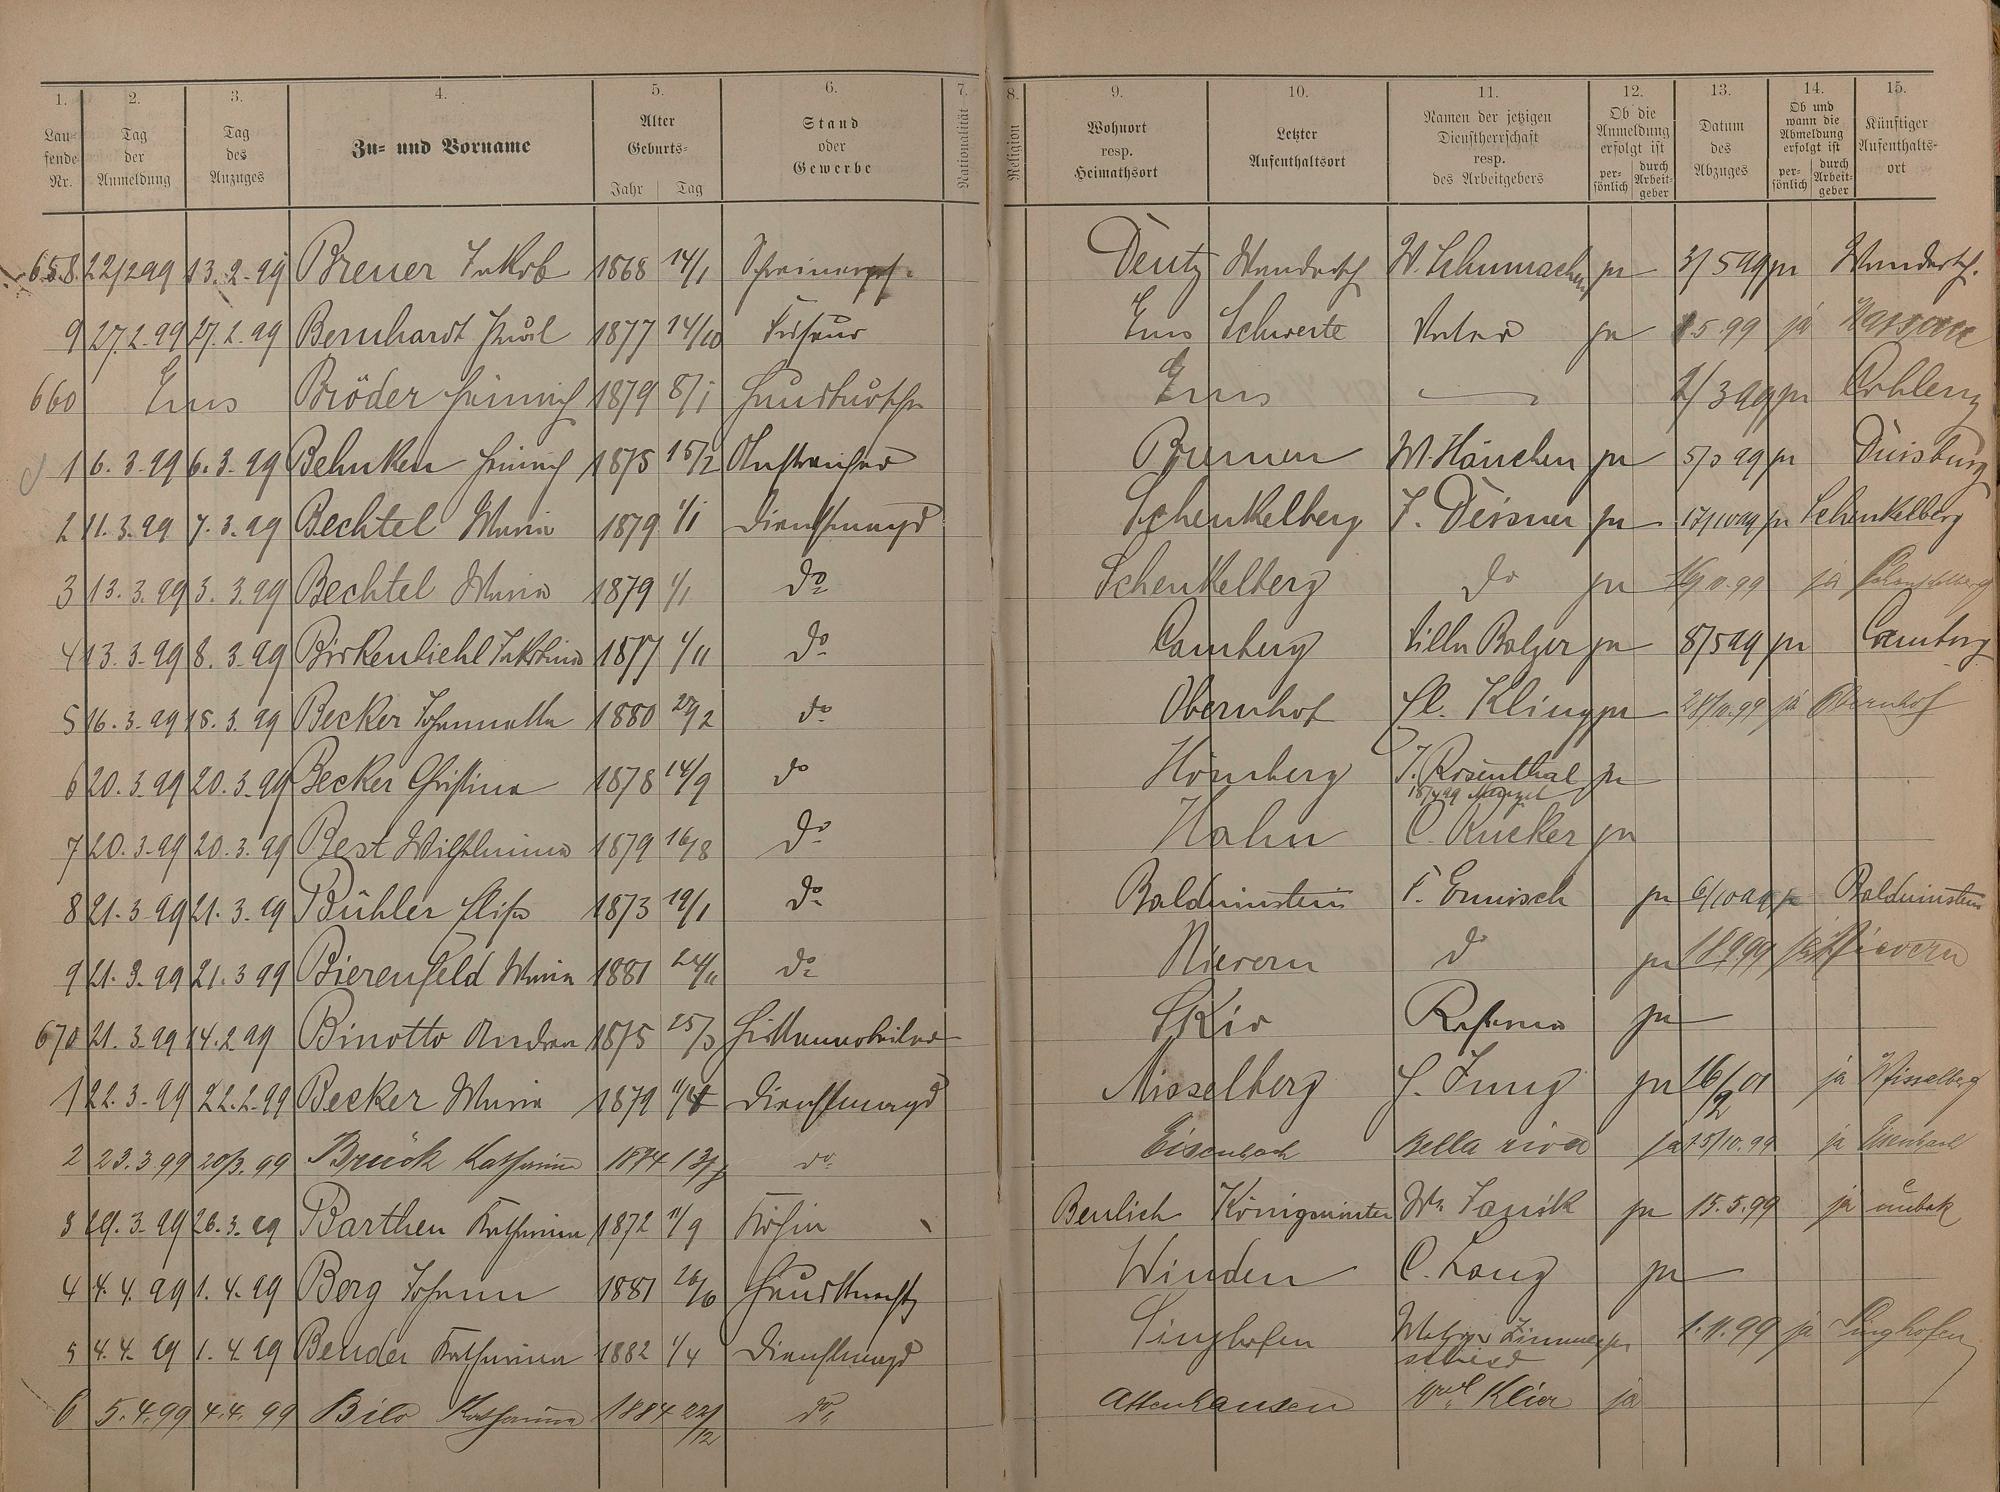 1. 2. 3. 4. 5. 6. 7. 8. 9. 10. 11. 12. 13. 14. 15.
Lau-fende Nr. Tag der Anmeldung Tag des Anzuges Zu- und Vorname Alter Geburts- Jahr Tag Stand oder Gewerbe Nationalität Religion Wohnort resp. Heimathsort Letzter Aufenthaltsort Namen der jetzigen Dienstherrschaft resp. des Arbeitgebers Ob die Anmeldung erfolgt ist per-sönlich durch Arbeit-geber Datum des Abzuges Ob und wann die Abmeldung erfolgt ist per-sönlich durch Arbeit-geber Künftiger Aufenthalts-ort
658 22/2 99 13.2.99 Breuer Jakob 1868 14/1 Schreinerges. Deutz Wandersch W. Schumacher ja 3/5 99 ja Wandersch.
9 27.2.99 27.2.99 Bernhardt Karl 1877 14/10 Friseur Ems Schwerte Vater ja 1.5.99 ja
660 Ems Bröder Heinrich 1879 8/1 Hausbursche Ems 2/3 99 ja Coblenz
1 6.3.99 6.3.99 Behnken Heinrich 1875 15/2 Anstreicher Bremen W. Hänchen ja 5/5 99 ja Duisburg
2 11.3.99 7.3.99 Bechtel Maria 1879 1/1 Dienstmagd Schenkelberg J. Deisner ja 17/10 99 ja Schenkelberg
3 13.3.99 3.3.99 Bechtel Maria 1879 1/1 do Schenkelberg do ja 16/11.99 ja Schenkelberg
4 13.3.99 8.3.99 Birkenbiehl Jakobina 1877 1/11 do Camberg Villa Balzer ja 8/5 99 ja Camberg
5 16.3.99 15.3.99 Becker Johannette 1880 29/2 do Obernhof H. Kling ja 28/10.99 ja Obernhof
6 20.3.99 20.3.99 Becker Christina 1878 14/9 do Hömberg J. Rosenthal ja
7 20.3.99 20.3.99 Best Wilhelmina 1879 16/8 do Hahn C. Rücker ja
8 21.3.99 21.3.99 Bühler Elise 1873 19/1 do Balduinstein F. Ermisch ja 6/10 99 ja Balduinstein
9 21.3.99 21.3.99 Bierenfeld Maria 1881 24/11 do Nievern do ja 18.9.99 ja Nievern
670 21.3.99 14.2.99 Binotto Andrea 1875 25/3 Hüttenarbeiter ja
1 22.3.99 22.2.99 Becker Maria 1879 Dienstmagd Misselberg H. Jung ja 16/2 01 ja Misselberg
2 23.3.99 20/3.99 Brück Katharina do. Eisenbach Bella riva ja 15/10.99 ja Eisenbach
3 29.3.99 26.3.99 Barthen Katharina 1872 11/9 Köchin Beulich Königswinter ja 15.5.99 ja unbek
4 4.4.99 1.4.99 Berg Johann 1881 26/6 Hausknecht Winden C. Lang ja
5 4.4.99 1.4.99 Bender Katharina 1882 1/4 Dienstmagd Singhofen Zimmerschied ja 1.11.99 ja Singhofen
6 5.4.99 4.4.99 Bilo Katharina 1884 22/12 do. Attenhausen Klier ja